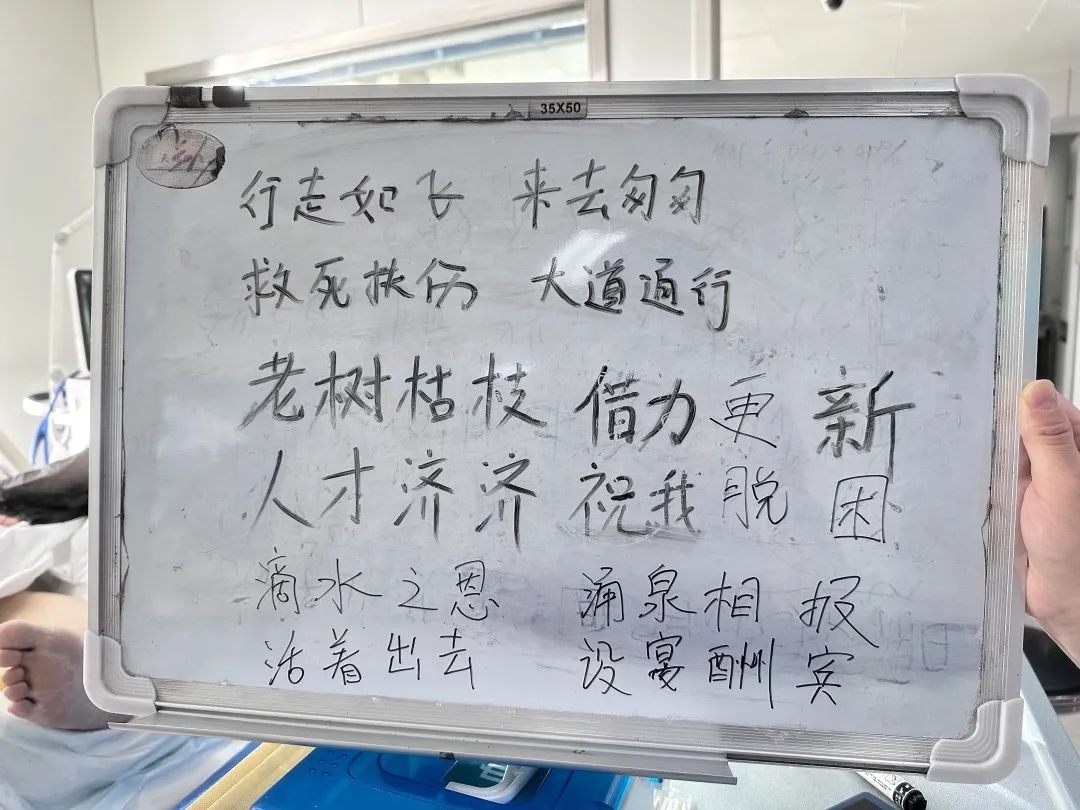 35X50
行走如飞 来去匆匆
救死扶伤 大道通行
老树枯枝 借力更新
人才济济 祝我脱困
滴水之恩 涌泉相报
活着出去 设宴酬宾